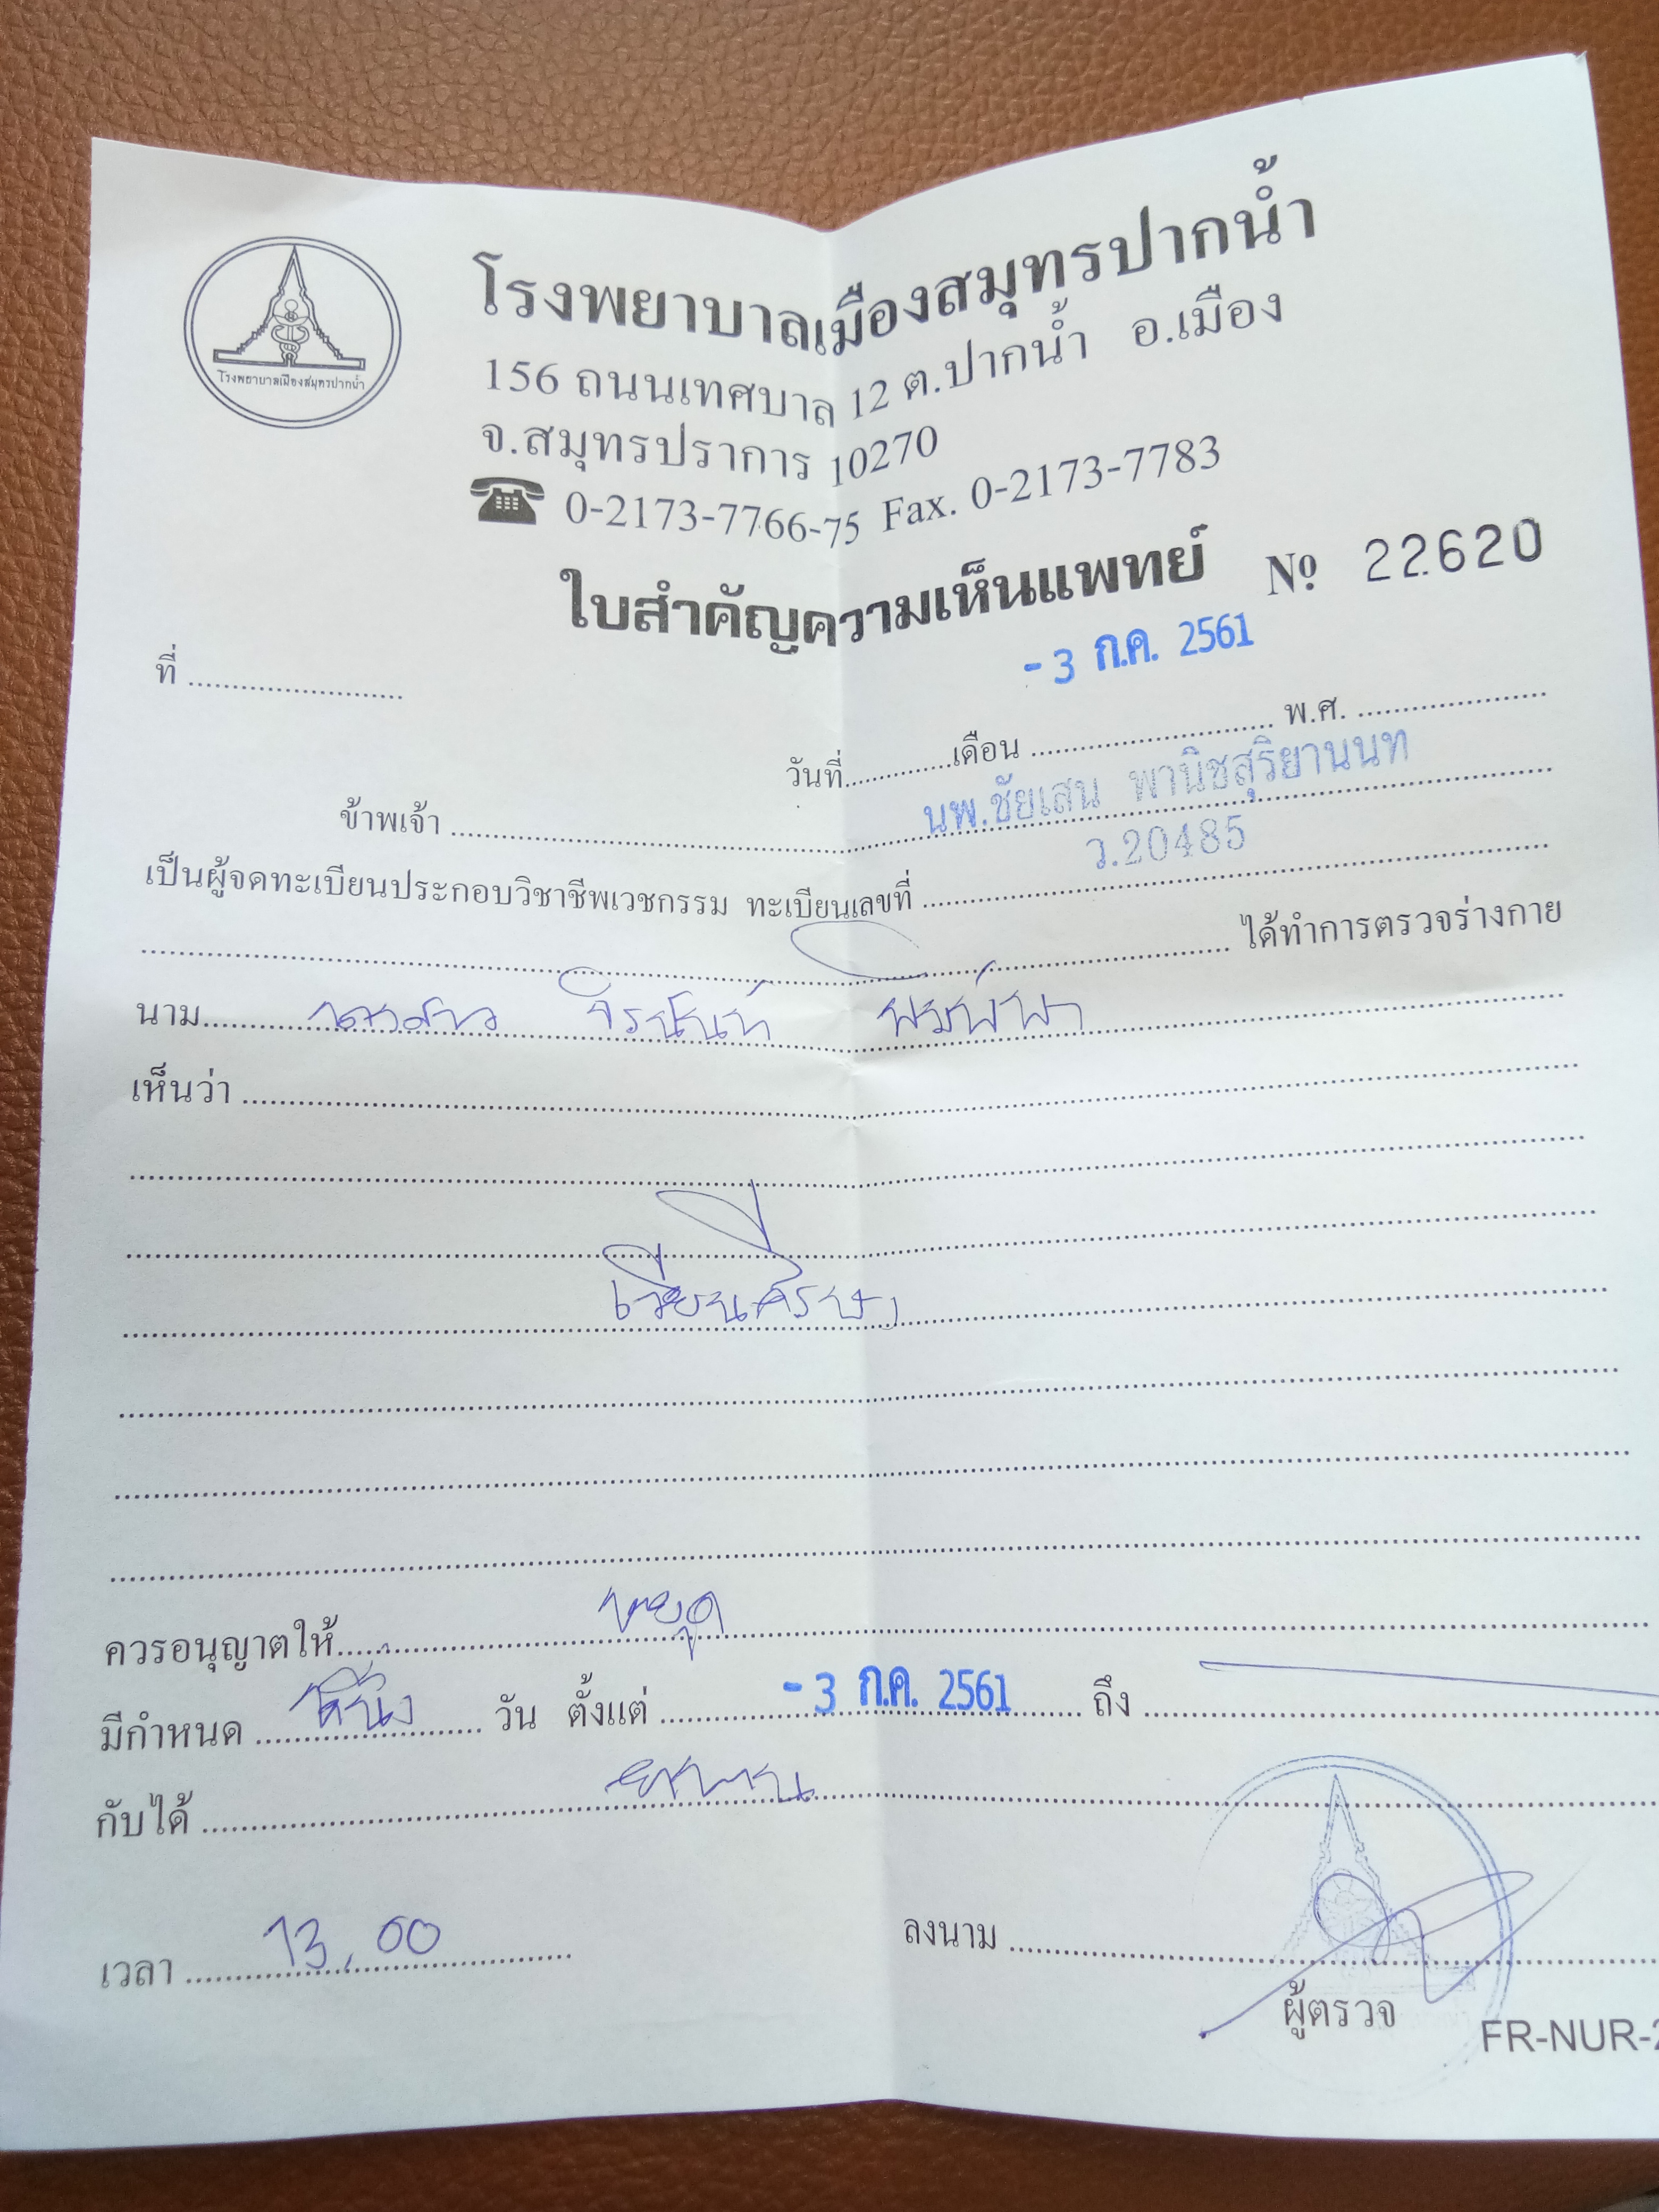 โรงพยาบาลเมืองสมุทรปากน้ำ
โรงพยาบาลเมืองสมุทรปากน้ำ
156 ถนนเทศบาล 12 ต.ปากน้ำ อ.เมือง
จ.สมุทรปราการ 10270
0-2173-7766-75 Fax. 0-2173-7783
ใบสำคัญความเห็นแพทย์ № 22620
- 3 ก.ค. 2561
ที่ ........................
วันที่............เดือน ........................... พ.ศ. .....................
ข้าพเจ้า ........ นพ.ชัยเสน พานิชสุริยานนท
เป็นผู้จดทะเบียนประกอบวิชาชีพเวชกรรม ทะเบียนเลขที่ ........ ว.20485
........ ได้ทำการตรวจร่างกาย
นาม........ นางสาว จิรนันท์ พิมพ์พา
เห็นว่า ........
เวียนศีรษะ
ควรอนุญาตให้........ หยุด
มีกำหนด ........ วัน ตั้งแต่ ........ - 3 ก.ค. 2561 ถึง ........
กับได้ ........
เวลา ........ 13.00
ลงนาม ........
ผู้ตรวจ
FR-NUR-2